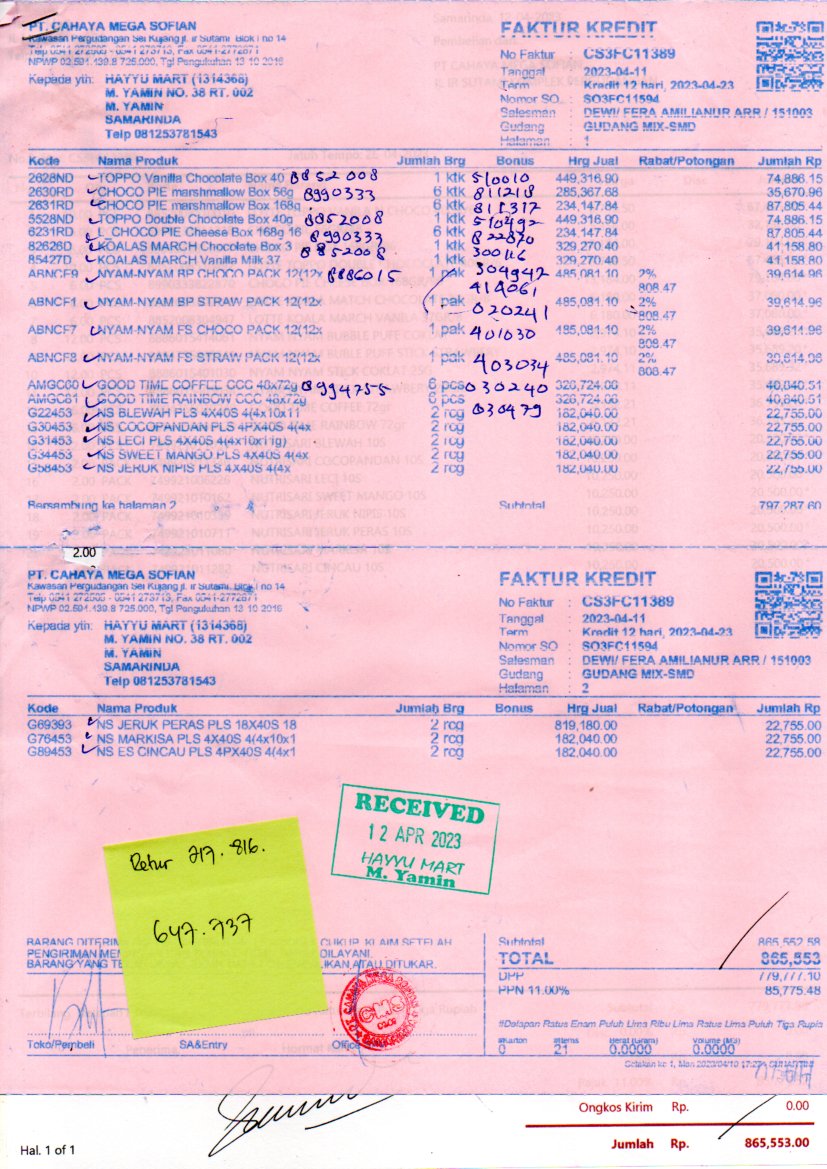 PT. CAHAYA MEGA SOFIAN
Kawasan Pergudangan Sei Kujang jl. ir Sutami Blok I no 14
NPWP 02.501.439.8 725.000, Tgl Pengukuhan 13 10 2016
Kepada yth: HAYYU MART (1314368)
M. YAMIN NO. 38 RT. 002
M. YAMIN
SAMARINDA
Telp 081253781543
FAKTUR KREDIT
No Faktur : CS3FC11389
Tanggal : 2023-04-11
Term : Kredit 12 hari, 2023-04-23
Nomor SO : SO3FC11594
Salesman : DEWI/ FERA AMILIANUR ARR / 151003
Gudang : GUDANG MIX-SMD
Halaman : 1
Kode Nama Produk Jumlah Brg Bonus Hrg Jual Rabat/Potongan Jumlah Rp
2628ND TOPPO Vanilla Chocolate Box 40 8852008 1 ktk 510010 449,316.90 74,886.15
2630RD CHOCO PIE marshmallow Box 56g 8990333 6 ktk 811218 285,367.68 35,670.96
2631RD CHOCO PIE marshmallow Box 168g 1 ktk 811317 234,147.84 87,805.44
5528ND TOPPO Double Chocolate Box 40g 8852008 1 ktk 510492 449,316.90 74,886.15
6231RD L_CHOCO PIE Cheese Box 168g 16 8990333 6 ktk 822870 234,147.84 87,805.44
82626D KOALAS MARCH Chocolate Box 3 8852008 1 ktk 300116 329,270.40 41,158.80
85427D KOALAS MARCH Vanilla Milk 37 1 ktk 304947 329,270.40 41,158.80
ABNCF9 NYAM-NYAM BP CHOCO PACK 12(12x 8886015 1 pak 414061 485,081.10 2% 39,614.96
808.47
ABNCF1 NYAM-NYAM BP STRAW PACK 12(12x 1 pak 020241 485,081.10 2% 39,614.96
808.47
ABNCF7 NYAM-NYAM FS CHOCO PACK 12(12x 1 pak 401030 485,081.10 2% 39,614.96
808.47
ABNCF8 NYAM-NYAM FS STRAW PACK 12(12x 1 pak 403034 485,081.10 2% 39,614.96
808.47
AMGC60 GOOD TIME COFFEE CCC 48x72g 8994755 6 pcs 030240 326,724.00 40,840.51
AMGC61 GOOD TIME RAINBOW CCC 48x72g 6 pcs 030479 326,724.00 40,840.51
G22453 NS BLEWAH PLS 4X40S 4(4x10x11 2 rcg 182,040.00 22,755.00
G30453 NS COCOPANDAN PLS 4PX40S 4(4x 2 rcg 182,040.00 22,755.00
G31453 NS LECI PLS 4X40S 4(4x10x11g) 2 rcg 182,040.00 22,755.00
G34453 NS SWEET MANGO PLS 4X40S 4(4x 2 rcg 182,040.00 22,755.00
G58453 NS JERUK NIPIS PLS 4X40S 4(4x 2 rcg 182,040.00 22,755.00
Bersambung ke halaman 2 Subtotal 797,287.60
2.00
PT. CAHAYA MEGA SOFIAN
Kawasan Pergudangan Sei Kujang jl. ir Sutami Blok I no 14
NPWP 02.501.439.8 725.000, Tgl Pengukuhan 13 10 2016
Kepada yth: HAYYU MART (1314368)
M. YAMIN NO. 38 RT. 002
M. YAMIN
SAMARINDA
Telp 081253781543
FAKTUR KREDIT
No Faktur : CS3FC11389
Tanggal : 2023-04-11
Term : Kredit 12 hari, 2023-04-23
Nomor SO : SO3FC11594
Salesman : DEWI/ FERA AMILIANUR ARR / 151003
Gudang : GUDANG MIX-SMD
Halaman : 2
Kode Nama Produk Jumlah Brg Bonus Hrg Jual Rabat/Potongan Jumlah Rp
G69393 NS JERUK PERAS PLS 18X40S 18 2 rcg 819,180.00 22,755.00
G76453 NS MARKISA PLS 4X40S 4(4x10x1 2 rcg 182,040.00 22,755.00
G89453 NS ES CINCAU PLS 4PX40S 4(4x1 2 rcg 182,040.00 22,755.00
RECEIVED
12 APR 2023
HAYYU MART
M. Yamin
Retur 217.816.
647.737
BARANG DITERIM CUKUP. KLAIM SETELAH
PENGIRIMAN MEN DILAYANI.
BARANG YANG TE LIKAN ATAU DITUKAR.
Toko/Pembeli SA&Entry Office
CMS
Subtotal 865,552.58
TOTAL 865,553
DPP 779,777.10
PPN 11.00% 85,775.48
#Delapan Ratus Enam Puluh Lima Ribu Lima Ratus Lima Puluh Tiga Rupia
#Karton #Items Berat (Gram) Volume (M3)
0 21 0.0000 0.0000
Ongkos Kirim Rp. 0.00
Jumlah Rp. 865,553.00
Hal. 1 of 1